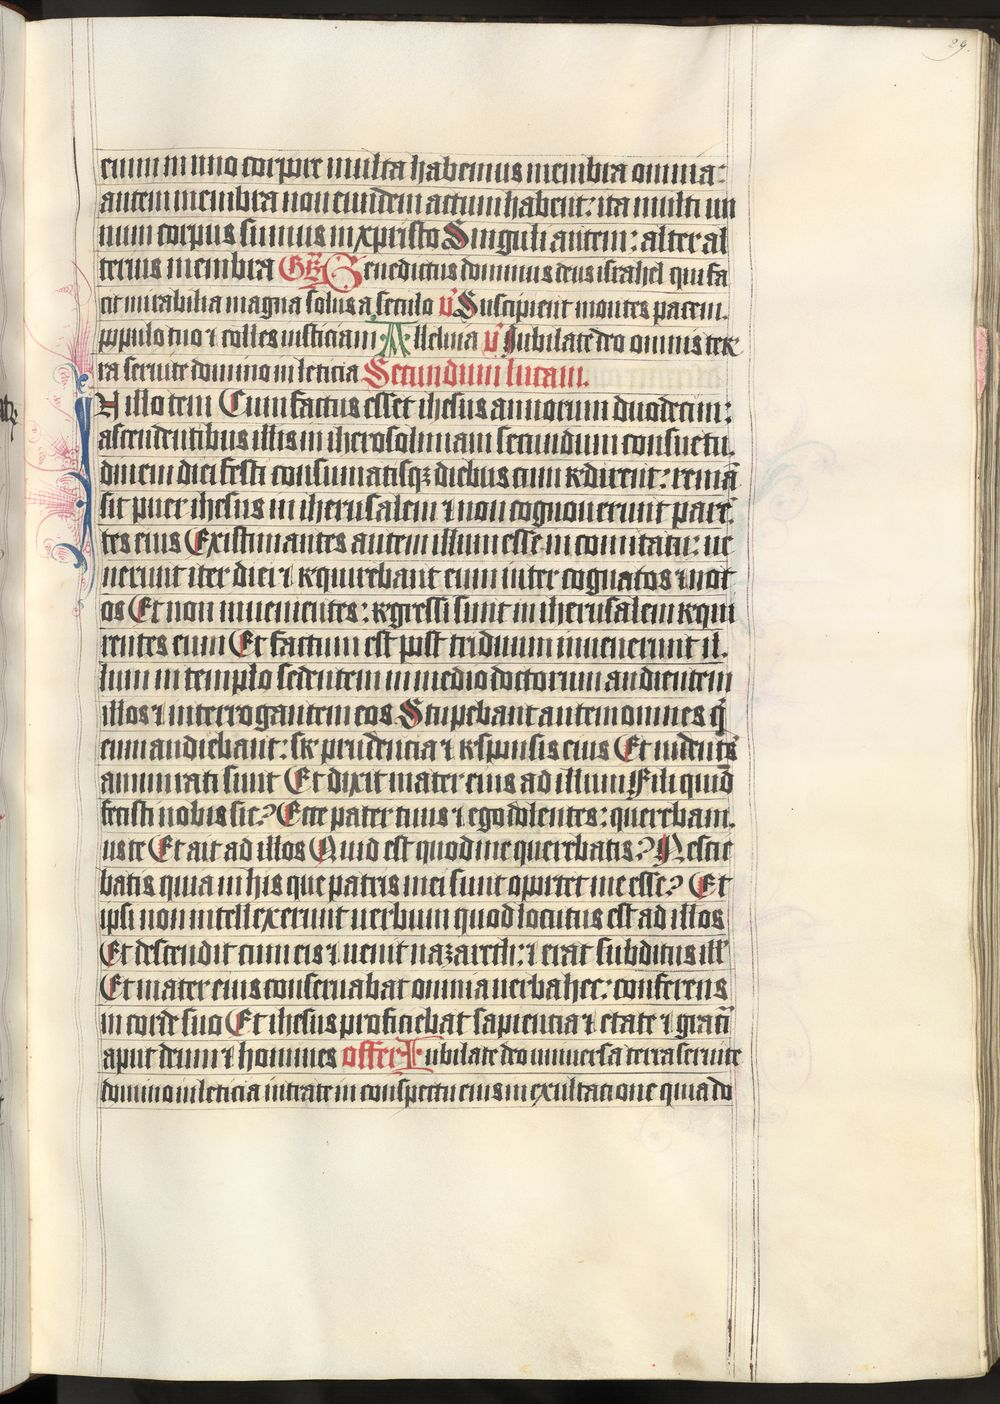 29.
enim in uno corpore multa habemus membra omnia:
autem membra non eundem actum habent: ita multi un
num corpus sumus in xpristo Singuli autem: alter al
terius membra Gr̄ Benedictus dominus deus israhel qui fa
cit mirabilia magna solus a seculo v̄ Suscipient montes pacem.
populo tuo ⁊ colles iusticiam Alleluia v̄ Iubilate deo omnis ter
ra seruite domino in leticia Secundum lucam.
In illo tem Cum factus esset ihesus annorum duodecim:
ascendentibus illis in iherosolimam secundum consuetu.
dinem diei festi consumatisqꝫ diebus cum redirent: remā
sit puer ihesus in iherusalem ⁊ non cognouerunt parē.
tes eius Existimantes autem illum esse in comitatu: ue
nerunt iter diei ⁊ requirebant eum inter cognatos ⁊ not
os Et non inuenientes: regressi sunt in iherusalem requi
rentes eum Et factum est post triduum inuenerunt il.
lum in templo sedentem in medio doctorum audientem
illos ⁊ interrogantem eos Stupebant autem omnes q̄
eum audiebant: sr prudencia ⁊ responsis eius Et uidentˢ
ammirati sunt Et dixit mater eius ad illum Fili quid
fecisti nobis sic? Ecce pater tuus ⁊ ego dolentes: querebam.
us te Et ait ad illos Quid est quod me querebatis? Nescie
batis quia in his que patris mei sunt oportet me esse? Et
ipsi non intellexerunt uerbum quod locutus est ad illos
Et descendit cum eis ⁊ uenit nazareth: ⁊ erat subditus ill'
Et mater eius conseruabat omnia uerba hec: conferens
in corde suo Et ihesus proficiebat sapiencia ⁊ etate ⁊ gratī
aput deum ⁊ homines offer. Iubilate deo uniuersa terra seruite
domino in leticia intrate in conspectu eius in exultacione quia do